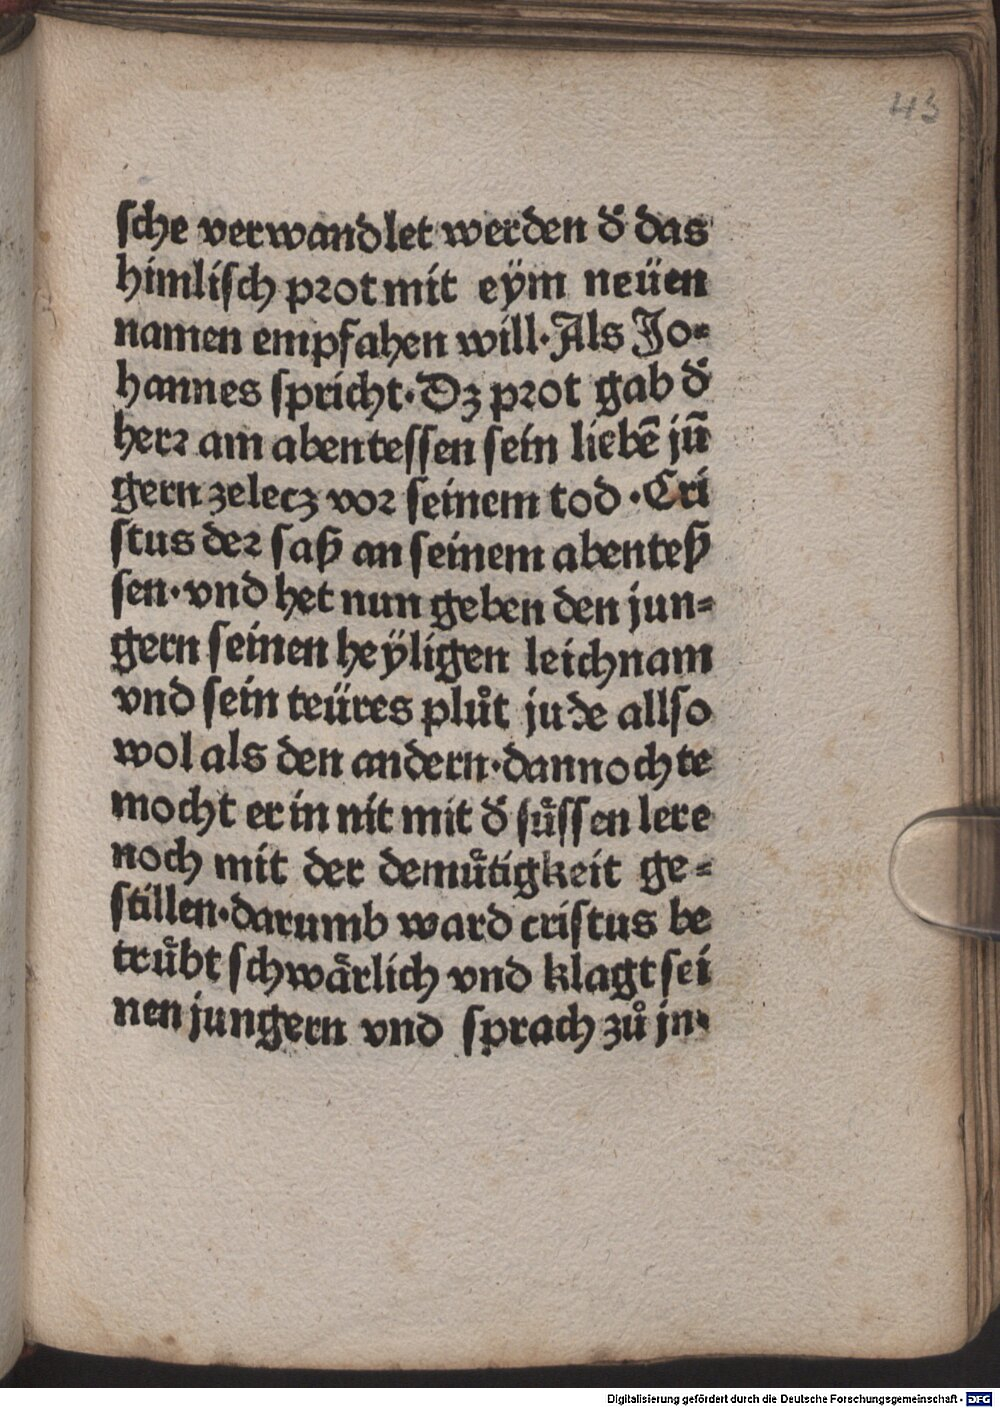 43
sche verwandlet werden d̕ das
himlisch prot mit eÿm neüen
namen empfahen will·Als Jo⸗
hannes spricht·Dz prot gab d̕
herr am abentessen sein liebē jū
gern zelecz vor seinem tod·Cri
stus der saß an seinem abenteß
sen·vnd het nun geben den jun⸗
gern seinen heÿligen leichnam
vnd sein teüres plůt jude allso
wol als den andern·dannochte
mocht er in nit mit d̕ suͤssen lere
noch mit der demuͤtigkeit ge⸗
stillen·darumb ward cristus be
truͤbt schwaͤrlich vnd klagt sei
nen jungern vnd sprach zů jn·
Digitalisierung gefördert durch die Deutsche Forschungsgemeinschaft - DFG